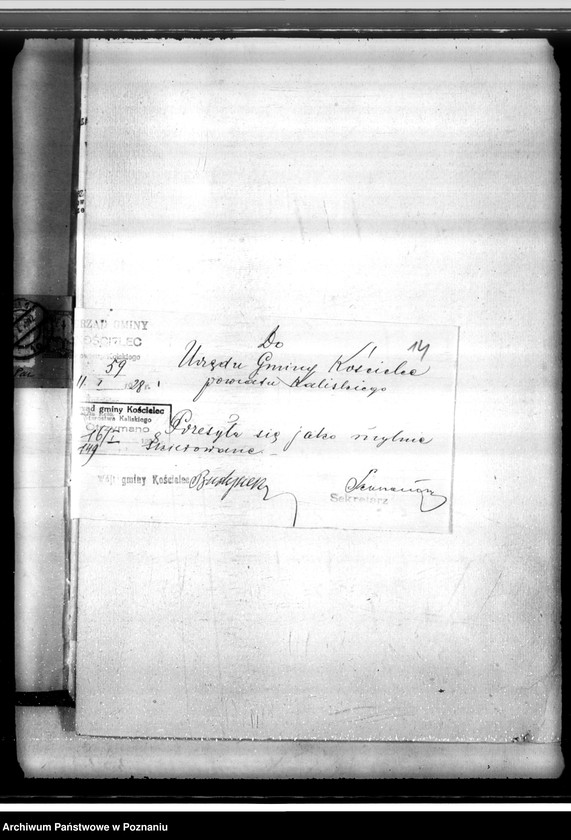 14
RZAD GMINY
OŚCIELEC
59
11. I 1928 r.
Do
Urzędu Gminy Kościelec
powiatu Kaliskiego
ąd gminy Kościelec
Kaliskiego
Otrzymano
16/I
149
Przesyła się jako mylnie
skierowane.
Wójt gminy Kościelec
Sekretarz
Archiwum Państwowe w Poznaniu